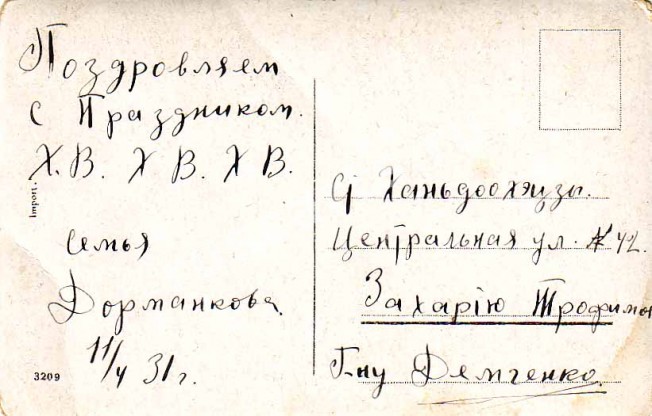 Поздровляем
с Праздником.
Х.В. Х В. Х В.
Import.
Семья
Дорманкова.
11/4 31 г.
3209
Ст Ханьдоохэцзы.
Центральная ул. № 42.
Захарію Трофимо
Г-ну Демченко.